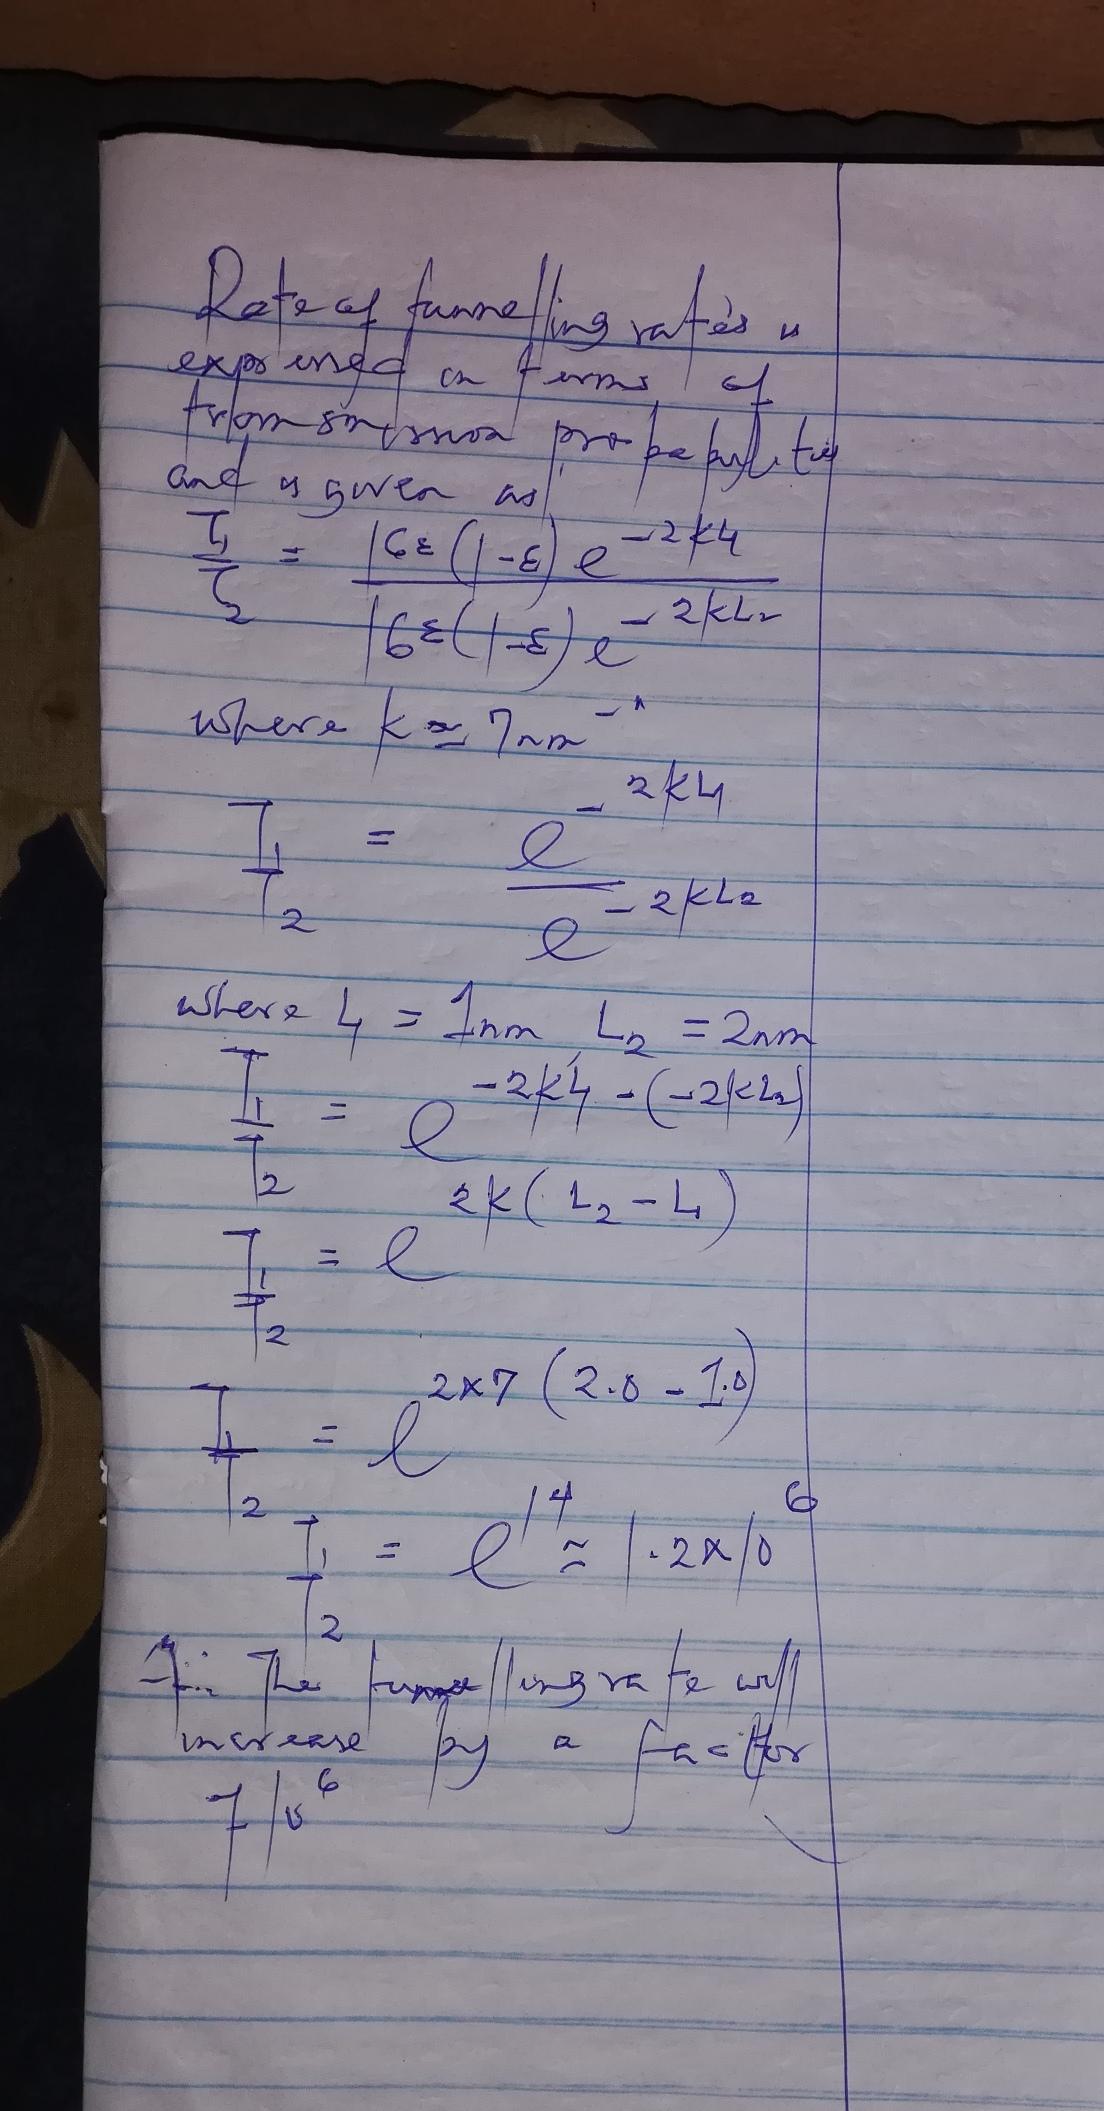 Rate of tunnelling rates is
expressed in terms of
transmission probability
and is given as
T1/T2 = 16ε(1-ε) e^-2kL1 / 16ε(1-ε) e^-2kL2
where k ≃ 7nm^-1
T1/T2 = e^-2kL1 / e^-2kL2
where L1 = 1nm, L2 = 2nm
T1/T2 = e^-2kL1 - (-2kL2)
T1/T2 = e^2k(L2 - L1)
T1/T2 = e^2x7(2.0 - 1.0)
T1/T2 = e^14 ≃ 1.2x10^6
∴ The tunnelling rate will
increase by a factor
of 10^6